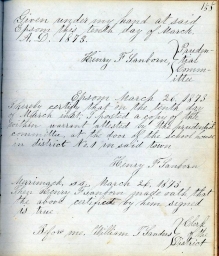 155
Given under my hand at said
Epsom this tenth day of March
A.D. 1873.
Henry F Sanborn } Pruden-
tial
Comm-
ittee
Epsom March 26 1873
I hereby certify that on the tenth day
of March inst, I posted a copy of the
within warrant attested by the prudential
committee, at the door of the school house
in district No 2 in said town
Henry F Sanborn
Merrimack, ss. March 26. 1873.
Then Henry F Sanborn made oath that
the above certificate by him signed
is true
Before me, William F Sanders } Clerk
of the
District